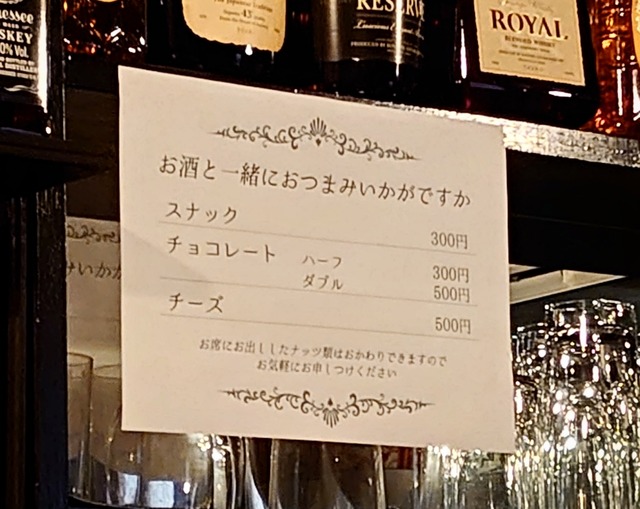 nessee
SKEY
RESERV
ROYAL
BLENDED WHISKY
お酒と一緒におつまみいかがですか
スナック 300円
チョコレート ハーフ 300円
ダブル 500円
チーズ 500円
お席にお出ししたナッツ類はおかわりできますので
お気軽にお申しつけください
みいかが